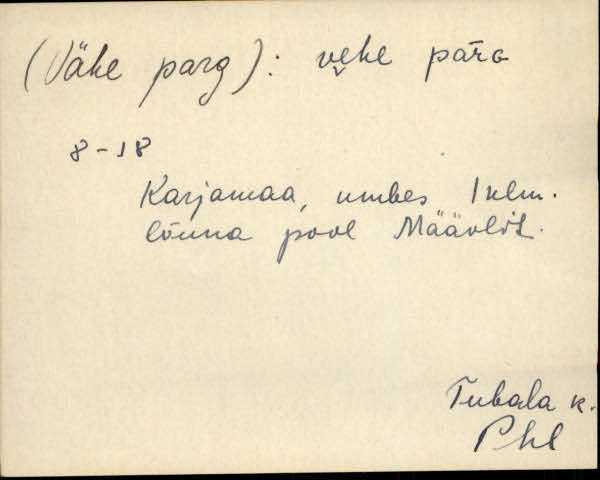 (Vähe parg): vehe pārɢ
8-18
Karjamaa, umbes 1 klm.
lõuna pool Määvlit.
Tubala k.
Phl